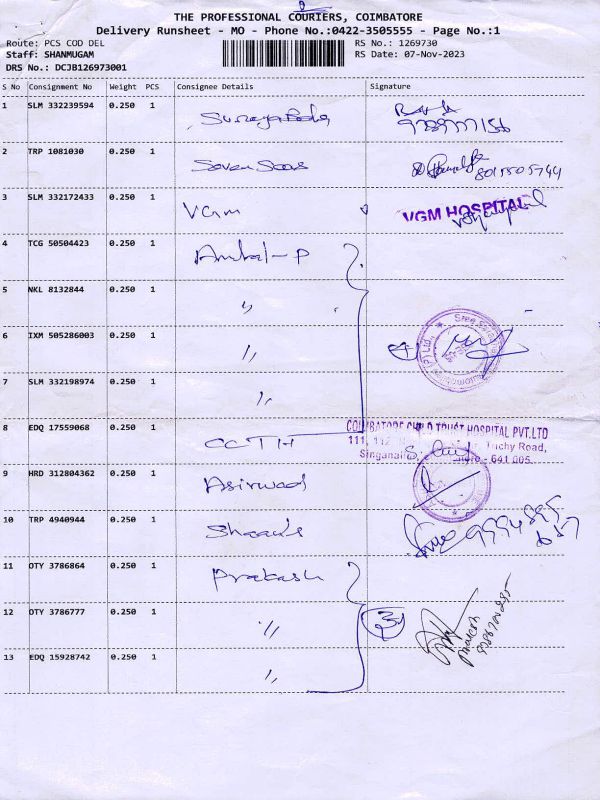 THE PROFESSIONAL COURIERS, COIMBATORE
Delivery Runsheet - MO - Phone No.:0422-3505555 - Page No.:1
Route: PCS COD DEL
Staff: SHANMUGAM
DRS No.: DCJB126973001
RS No.: 1269730
RS Date: 07-Nov-2023
S No Consignment No Weight PCS Consignee Details Signature
1 SLM 332239594 0.250 1
2 TRP 1081030 0.250 1 Seven Seas
3 SLM 332172433 0.250 1 VGM VGM HOSPITAL
4 TCG 50504423 0.250 1 Ambal-P
5 NKL 8132844 0.250 1 "
6 IXM 505286003 0.250 1 "
7 SLM 332198974 0.250 1 "
8 EDQ 17559068 0.250 1 CCTH COIMBATORE CHILD TRUST HOSPITAL PVT.LTD
111, 112 Trichy Road,
641 005.
9 HRD 312804362 0.250 1 Asirwad
10 TRP 4940944 0.250 1
11 OTY 3786864 0.250 1 Prakash
12 OTY 3786777 0.250 1 " 3
13 EDQ 15928742 0.250 1 "